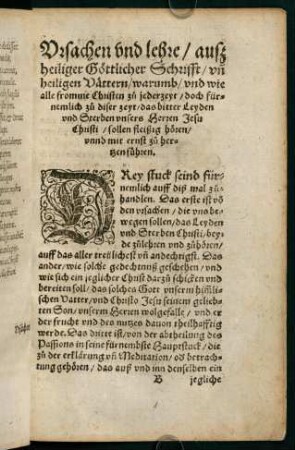 Vrsachen vnd lehre / ausz
heiliger Göttlicher Schrifft / vñ
heiligen Vättern / warumb / vnd wie
alle fromme Christen zů jederzeyt / doch für-
nemlich zů diser zeyt / das bitter Leyden
vnd Sterben vnsers Herren Jesu
Christi / sollen fleißig hören /
vnnd mit ernst zů her-
tzen führen.
DRey stuck seind für-
nemlich auff diß mal zů-
handlen. Das erste ist võ
den vrsachen / die vns be-
wegen sollen / das Leyden
vnd Sterben Christi / bey-
de zůlehren vnd zůhören /
auff das aller treülichest vñ andechtigst. Das
ander / wie solche gedechtnuß geschehen / vnd
wie sich ein jeglicher Christ darzů schicken vnd
bereiten soll / das solches Gott vnserm himli-
schen Vatter / vnd Christo Jesu seinem geliebt-
ten Son / vnserm Herren wolgefalle / vnd er
der frucht vnd des nutzes dauon theilhafftig
werde. Das dritt ist / von der abtheilung des
Passions in seine fürnembste Hauptstuck / die
zů der erklärung vñ Meditation / oď betrach-
tung gehören / das auß vnd inn denselben ein
B jegliche